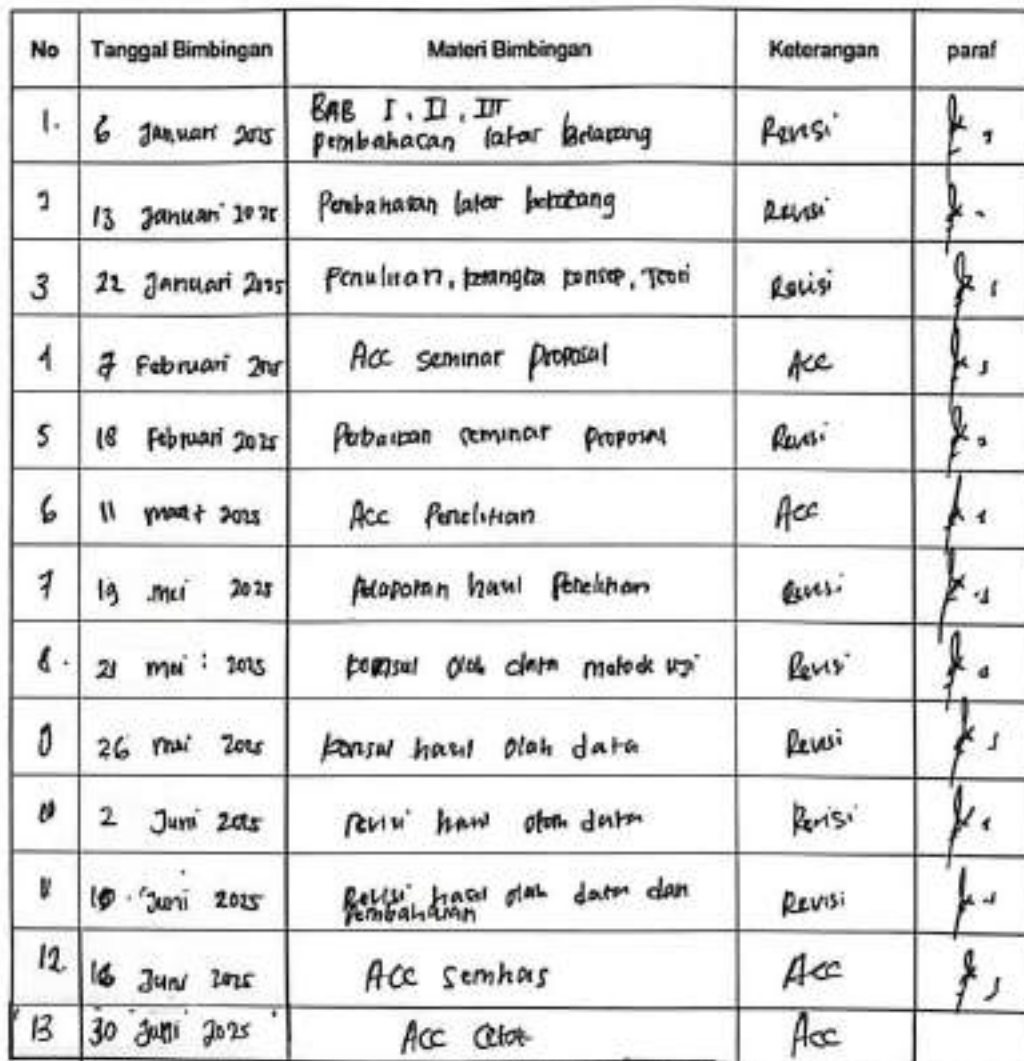 No Tanggal Bimbingan Materi Bimbingan Keterangan paraf
1. 6 Januari 2025 BAB I, II, III
pembahasan latar belakang Revisi
2 13 Januari 2025 Pembahasan latar belakang Revisi
3 22 Januari 2025 Penulisan, kerangka konsep, Teori Revisi
4 7 Februari 2025 Acc seminar proposal Acc
5 18 Februari 2025 Perbaikan seminar proposal Revisi
6 11 maret 2025 Acc Penelitian Acc
7 19 mei 2025 Pelaporan hasil Penelitian Revisi
8. 21 mei 2025 konsul olah data metode uji Revisi
9 26 mei 2025 konsul hasil olah data Revisi
10 2 Juni 2025 revisi hasil olah data Revisi
11 10 Juni 2025 Revisi hasil olah data dan
pembahasan Revisi
12. 16 Juni 2025 ACC Semhas Acc
13 30 Juni 2025 Acc Cetak Acc